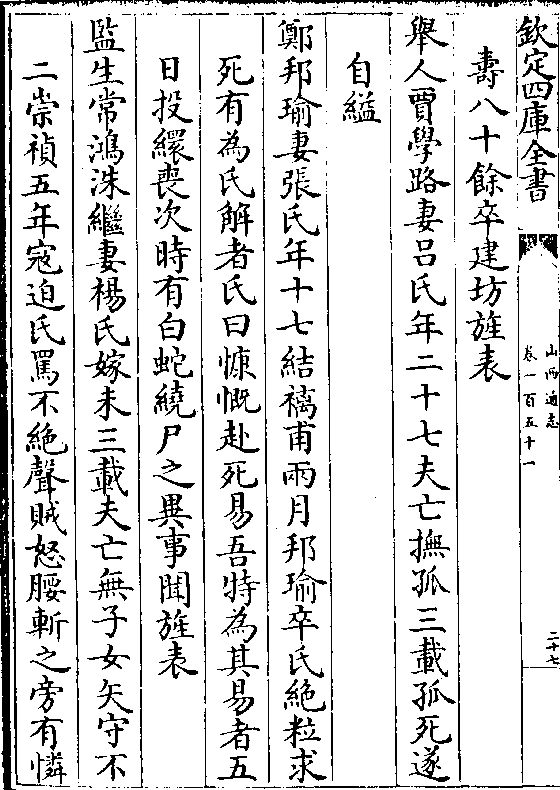 欽定四庫全書
山西通志
卷一百五十一
二十七
壽八十餘卒建坊旌表
舉人賈學路妻呂氏年二十七夫亡撫孤三載孤死遂
自縊
鄭邦瑜妻張氏年十七結褵甫兩月邦瑜卒氏絶粒求
死有為氏解者氏曰慷慨赴死易吾特為其易者五
日投繯喪次時有白蛇繞尸之異事聞旌表
監生常鴻洙繼妻楊氏嫁未三載夫亡無子女矢守不
二崇禎五年寇迫氏罵不絶聲賊怒腰斬之旁有憐